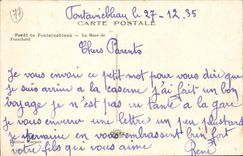 77
Fontainebleau le 27-12.35
CARTE POSTALE
Forêt de Fontainebleau - La Mare de Franchard
Chers Parents
Je vous envoi ce petit mot pour vous dire que
je suis arrivé a la caserne j'ai fait un bon
voyage je n'est pas eu à la gare je
vous enverre une lettre un peu plustard
Je termine en vous embrassant bien fort
votre fils qui vous aime René